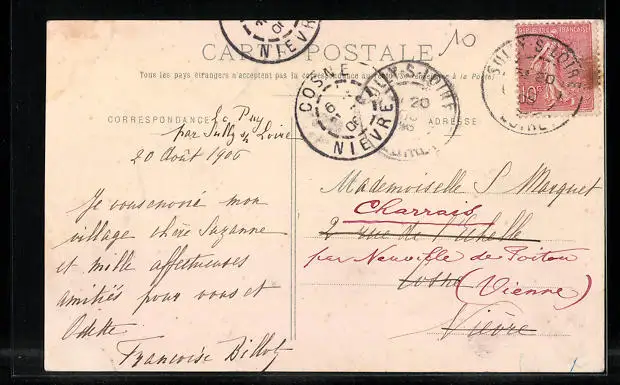 CARTE POSTALE
10
Tous les pays étrangers n'acceptent pas la correspondance au recto (Se renseigner à la Poste)
RÉPUBLIQUE FRANÇAISE
10c
SULLY S. LOIRE
20
LOIRET
COSNE
NIÈVRE
SULLY S. LOIRE
20
NIÈVRE
CORRESPONDANCE
ADRESSE
Le
par Sully s/ Loire
20 Août 1906
Je vous envoie mon
village chère Suzanne
et mille affectueuses
amitiés pour vous et
Odette
Françoise Billot
Mademoiselle S Marquet
Charrais
2 rue de l'Echelle
par Neuville de Poitou
Cosne
(Vienne)
Nièvre